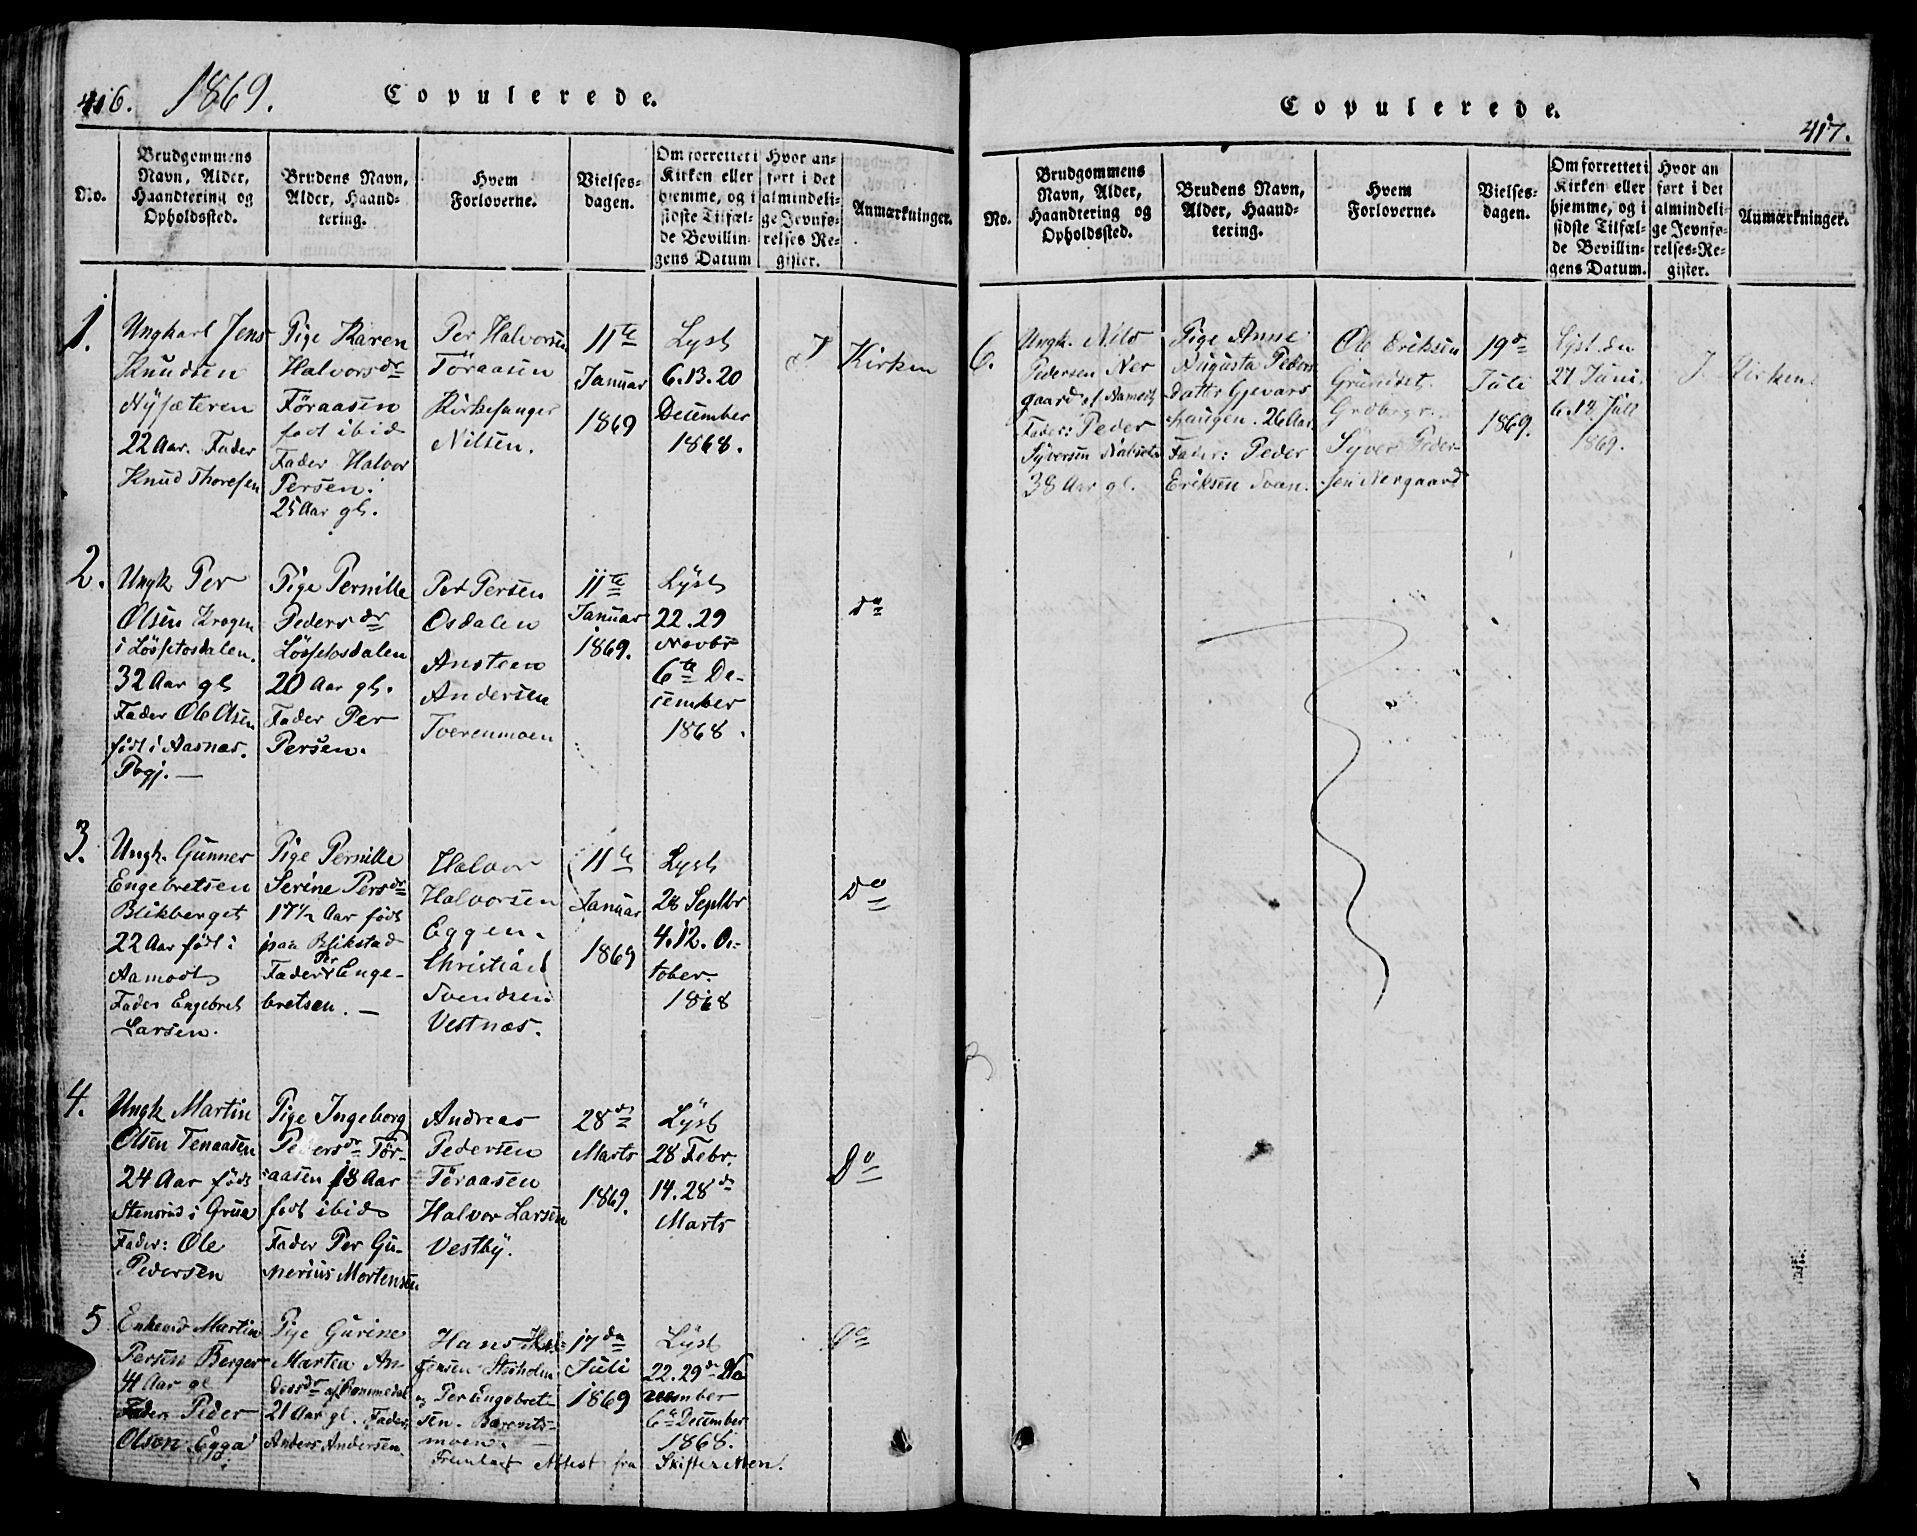 416. 1869. Copulerede.
No.
Brudgommens
Navn, Alder,
Haandtering og
Opholdssted.
Brudens Navn,
Alder, Haand-
tering.
Hvem
Forloverne.
Vielses-
dagen.
Om forrettet i
Kirken eller
hjemme, og i
sidste Tilfæl-
de Bevillin-
gens Datum
Hvor an-
ført i det
almindeli-
ge Jevnfø-
relses-Re-
gister.
Anmærkninger.
1.
Ungkarl Jens
Knudsen
Nysæteren
22 Aar. Fader
Knud Thoresen
Pige Karen
Halvorsdr
Föraasen
født ibid
Fader Halvor
Persen.
25 Aar gl.
Per Halvorsen
Töraasen
Kirkesanger
Nilsen.
11te
Januar
1869
Lyst
6. 13. 20
December
1868.
J
Kirken
2.
Ungk Per
Olsen Krogen
i Løssetosdalen.
32 Aar gl
Fader Ole Olsen
født i Aasnæs.
Pgj. —
Pige Pernille
Pedersdr
Løssetosdalen
20 Aar gl.
Fader Per
Persen.
Per Persen
Osdalen
Ansteen
Andersen
Tverenmoen
11te
Januar
1869.
Lyst
22. 29
Novbr
6te De-
cember
1868.
do
3.
Ungk. Gunner
Engebretsen
Blikberget
22 Aar født i
Aamodt
Fader Engebret
Larsen.
Pige Pernille
Serine Persdr
17½ Aar født
paa Blikstad
Fader Per Enge-
bretsen. —
Halvor
Halvorsen
Eggen.
Christian
Svendsen
Vestnæs.
11te
Januar
1869
Lyst
28 Septbr
4. 12. Oc-
tober.
1868
Do
4.
Ungk Martin
Olsen Tenaasen
24 Aar født
Stensrud i Grua
Fader: Ole
Pedersen
Pige Ingeborg
Pedersdr Tör-
aasen 18 Aar
født ibid
Fader Per Gu-
nerius Mortensen
Andreas
Pedersen
Töraasen
Halvor Larsen
Vestby.
28de
Marts
1869.
Lyst
28 Febr.
14. 28de
Marts
Do
5
Enkemd Martin
Persen Berger
41 Aar gl
Fader Peder
Olsen Egga
Pige Gurine
Marten An-
dersdr af Rommedal
21 Aar gl. Fader
Anders Andersen
Hans
Stasholm
og Per Engebret-
sen. Berents-
moen. —
17de
Juli
1869
Lyst
22. 29de No
vember
6te December
1868.
Fremlagt Attest fra Skifteretten.
do
Copulerede.
417.
No.
Brudgommens
Navn, Alder,
Haandtering og
Opholdssted.
Brudens Navn,
Alder, Haand-
tering.
Hvem
Forloverne.
Vielses-
dagen.
Om forrettet i
Kirken eller
hjemme, og i
sidste Tilfæl-
de Bevillin-
gens Datum.
Hvor an
ført i det
almindeli-
ge Jevnfø-
relses-Re-
gister.
Anmærkninger.
6.
Ungk. Nils
Pedersen Ner
gaard af Aamodt
Fader: Peder
Syversen
38 Aar gl.
Pige Anne
Augusta Peders
datter Gjevars
haugen. 26 Aar
Fader: Peder
Eriksen Svan.
Ole Eriksen
Grundset.
Grdbrgr.
Syver Peder-
sen Nergaard
19de
Juli
1869.
Lyst den
27 Juni.
6. 18 Juli
1869.
J
Kirken.